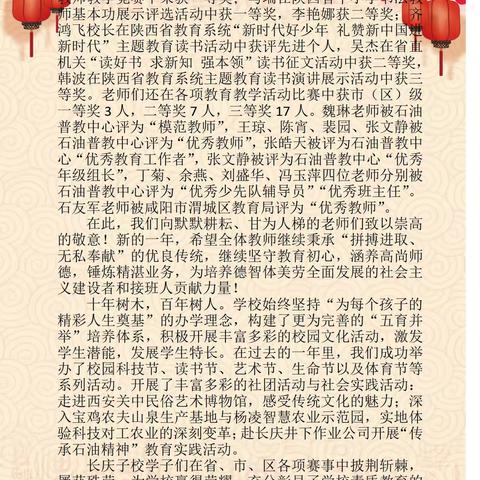 师基本功展示评选活动中获一等奖，李艳娜获二等奖；齐
鸿飞校长在陕西省教育系统“新时代好少年 礼赞新中国建
新时代”主题教育读书活动中获评先进个人，吴杰在省直
机关“读好书 求新知 强本领”读书征文活动中获二等奖，
韩波在陕西省教育系统主题教育读书演讲展示活动中获三
等奖。老师们还在各项教育教学活动比赛中获市（区）级
一等奖3人，二等奖7人，三等奖17人。魏琳老师被石油
普教中心评为“模范教师”，王琼、陈宵、裴园、张文静被
石油普教中心评为“优秀教师”，张皓天被评为石油普教中
心“优秀教育工作者”，张文静被评为石油普教中心“优秀
年级组长”，丁菊、余燕、刘盛华、冯玉萍四位老师分别被
石油普教中心评为“优秀少先队辅导员”“优秀班主任”。
石友军老师被咸阳市渭城区教育局评为“优秀教师”。
在此，我们向默默耕耘、甘为人梯的老师们致以崇高
的敬意！新的一年，希望全体教师继续秉承“拼搏进取、
无私奉献”的优良传统，继续坚守教育初心，涵养高尚师
德，锤炼精湛业务，为培养德智体美劳全面发展的社会主
义建设者和接班人贡献力量！
十年树木，百年树人。学校始终坚持“为每个孩子的
精彩人生奠基”的办学理念，构建了更为完善的“五育并
举”培养体系，积极开展丰富多彩的校园文化活动，激发
学生潜能，发展学生特长。在过去的一年里，我们成功举
办了校园科技节、读书节、艺术节、生命节以及体育节等
系列活动。开展了丰富多彩的社团活动与社会实践活动：
走进西安关中民俗艺术博物馆，感受传统文化的魅力；深
入宝鸡农夫山泉生产基地与杨凌智慧农业示范园，实地体
验科技对工农业的深刻变革；赴长庆井下作业公司开展“传
承石油精神”教育实践活动。
长庆子校学子们在省、市、区各项赛事中披荆斩棘，